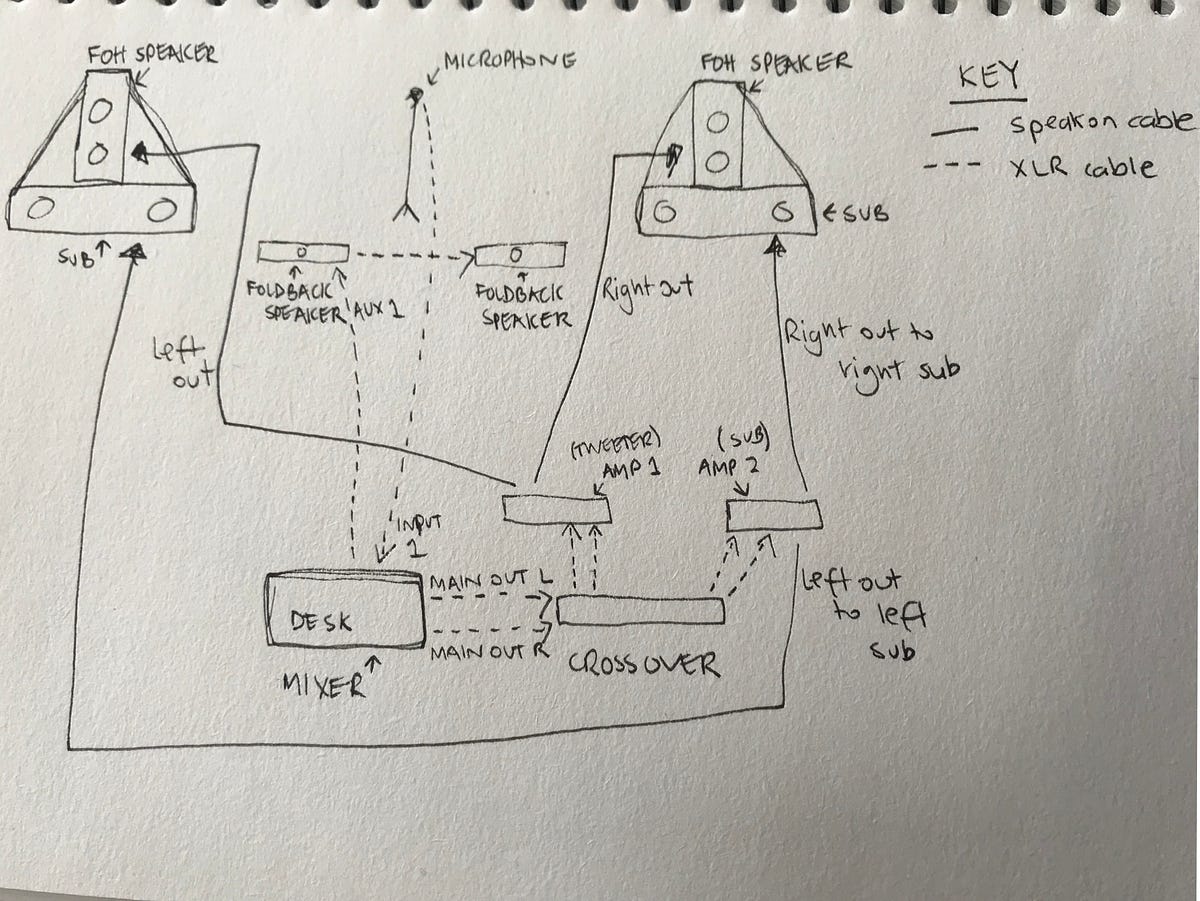 FOH SPEAKER
MICROPHONE
FOH SPEAKER
KEY
speakon cable
XLR cable
SUB
SUB
FOLDBACK
SPEAKER
AUX 1
FOLDBACK
SPEAKER
Right out
Left
out
Right out to
right sub
(TWEETER)
AMP 1
(SUB)
AMP 2
INPUT
1
DESK
MAIN OUT L
MAIN OUT R
MIXER
CROSSOVER
Left out
to left
sub